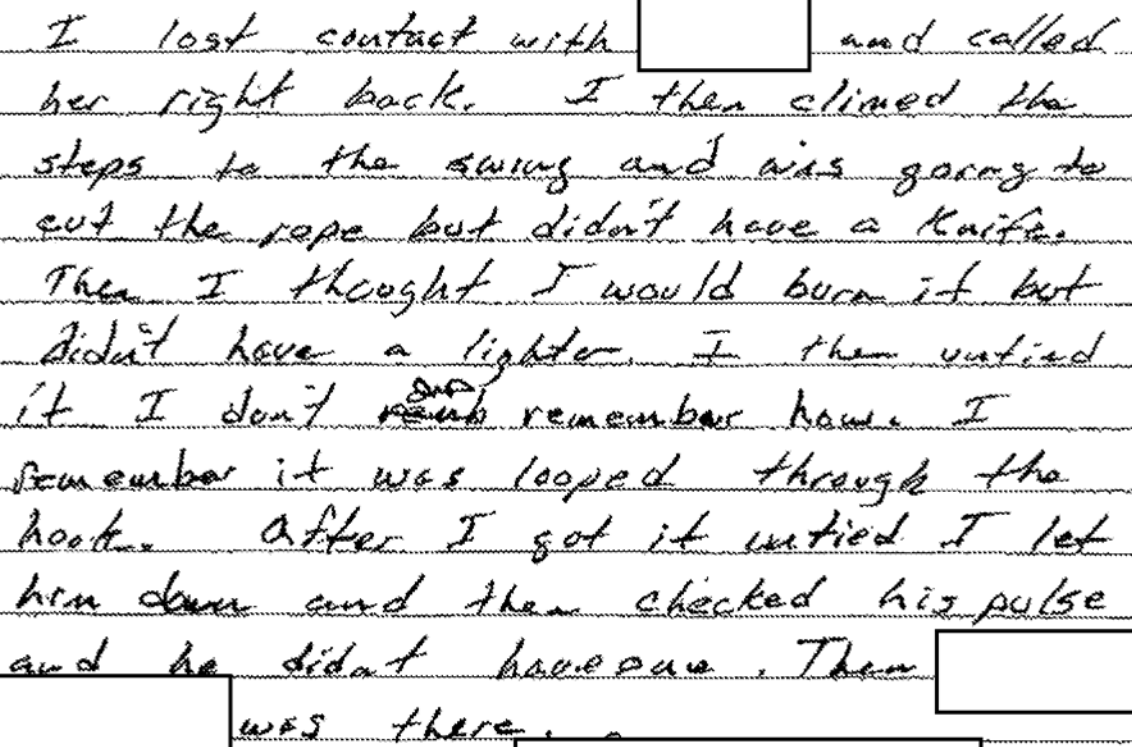 I lost contact with and called
her right back. I then climed the
steps to the swing and was going to
cut the rope but didn't have a knife.
Then I thought I would burn it but
didn't have a lighter. I then untied
it I don't remember how. I
remember it was looped through the
hook. After I got it untied I let
him down and then checked his pulse
and he didn't have one. Then
was there.